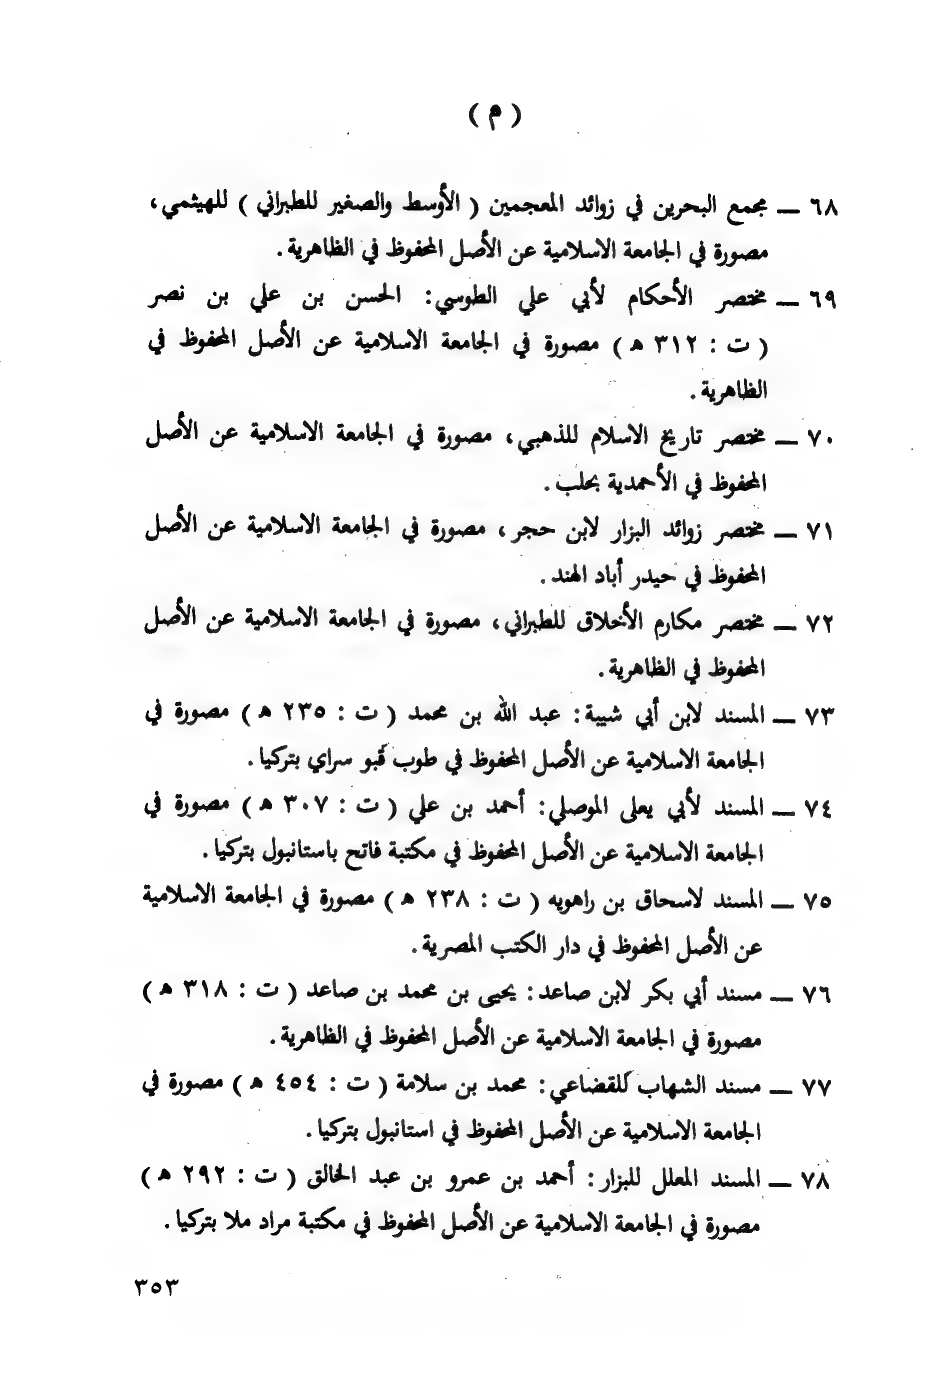 ( م )
٦٨ ــ مجمع البحرين في زوائد المعجمين ( الأوسط والصغير للطبراني ) للهيثمي،
مصورة في الجامعة الاسلامية عن الأصل المحفوظ في الظاهرية.
٦٩ ــ مختصر الأحكام لأبي علي الطوسي: الحسن بن علي بن نصر
( ت : ٣١٢ هـ ) مصورة في الجامعة الاسلامية عن الأصل المحفوظ في
الظاهرية.
٧٠ ــ مختصر تاريخ الاسلام للذهبي، مصورة في الجامعة الاسلامية عن الأصل
المحفوظ في الأحمدية بحلب.
٧١ ــ مختصر زوائد البزار لابن حجر، مصورة في الجامعة الاسلامية عن الأصل
المحفوظ في حيدر أباد الهند.
٧٢ ــ مختصر مكارم الأخلاق للطبراني، مصورة في الجامعة الاسلامية عن الأصل
المحفوظ في الظاهرية.
٧٣ ــ المسند لابن أبي شيبة: عبد الله بن محمد ( ت : ٢٣٥ هـ ) مصورة في
الجامعة الاسلامية عن الأصل المحفوظ في طوب قبو سراي بتركيا.
٧٤ ــ المسند لأبي يعلى الموصلي: أحمد بن علي ( ت : ٣٠٧ هـ ) مصورة في
الجامعة الاسلامية عن الأصل المحفوظ في مكتبة فاتح باستانبول بتركيا.
٧٥ ــ المسند لاسحاق بن راهويه ( ت : ٢٣٨ هـ ) مصورة في الجامعة الاسلامية
عن الأصل المحفوظ في دار الكتب المصرية.
٧٦ ــ مسند أبي بكر لابن صاعد: يحيى بن محمد بن صاعد ( ت : ٣١٨ هـ )
مصورة في الجامعة الاسلامية عن الأصل المحفوظ في الظاهرية.
٧٧ ــ مسند الشهاب للقضاعي: محمد بن سلامة ( ت : ٤٥٤ هـ ) مصورة في
الجامعة الاسلامية عن الأصل المحفوظ في استانبول بتركيا.
٧٨ ــ المسند المعلل للبزار: أحمد بن عمرو بن عبد الخالق ( ت : ٢٩٢ هـ )
مصورة في الجامعة الاسلامية عن الأصل المحفوظ في مكتبة مراد ملا بتركيا.
٣٥٣